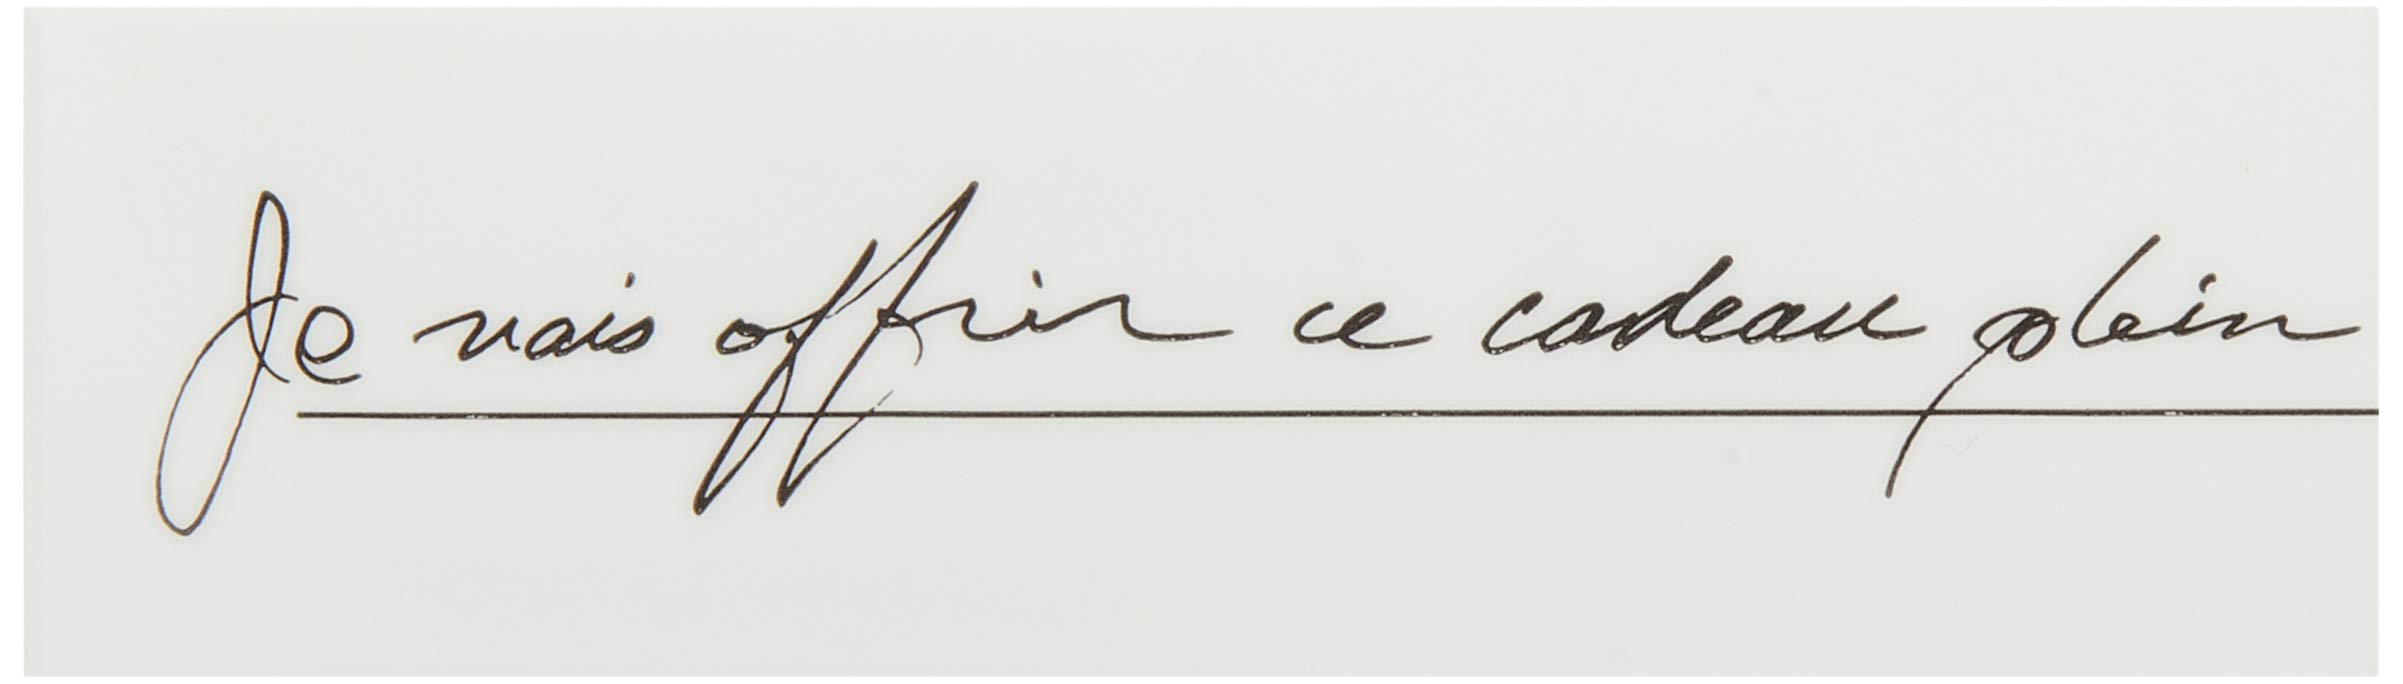 Je vais offrir ce cadeau plein